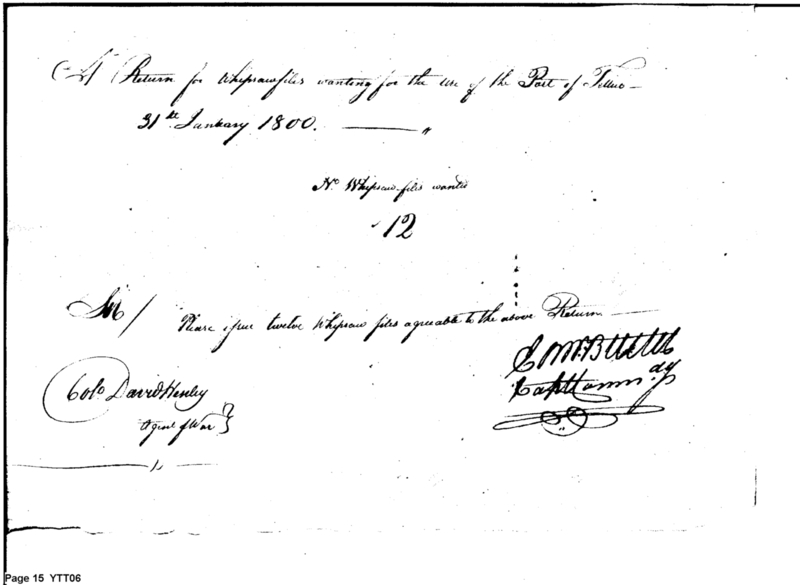 A Return for Whipsaw files wanting for the use of the Post of Tellico
31st January 1800.
No. Whipsaw files wanted
12
Sir /
Please issue twelve Whipsaw files agreeable to the above Return
Colo David Henley
Agent of War
Capt Comm dg
Page 15 YTT06